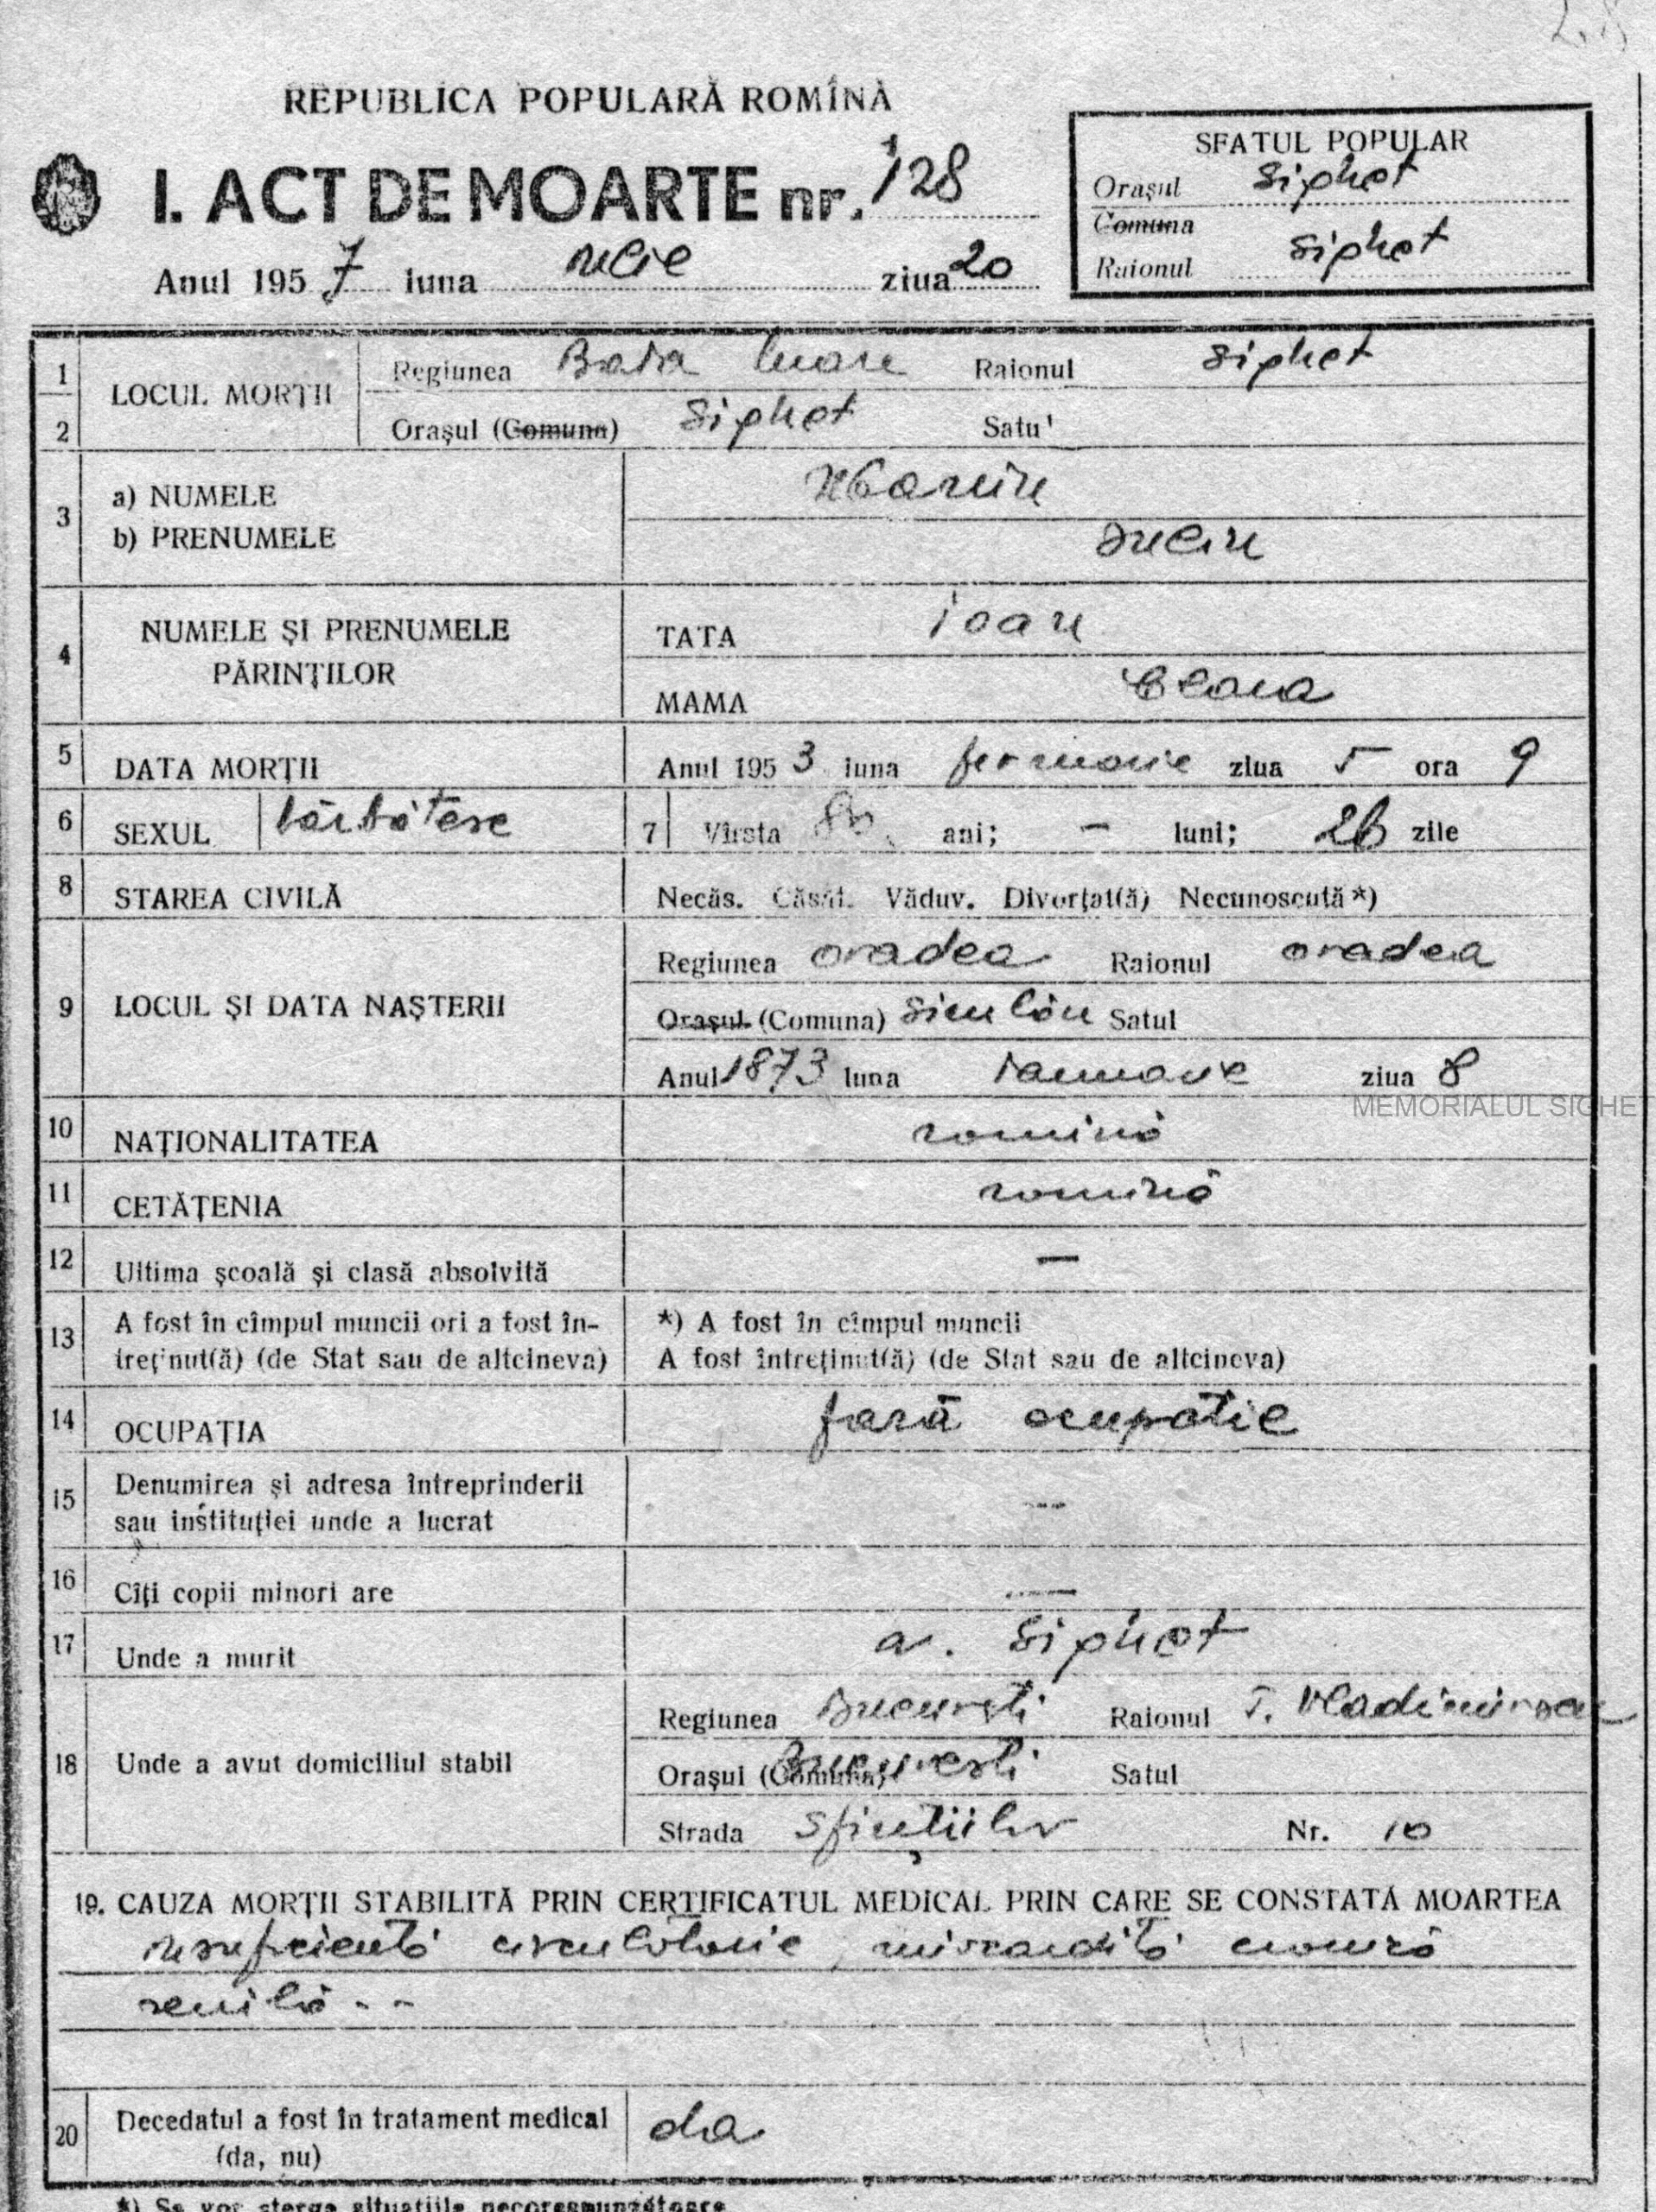 REPUBLICA POPULARĂ ROMÎNĂ
I. ACT DE MOARTE nr. 128
Anul 1957 luna iulie ziua 20
SFATUL POPULAR
Oraşul Sighet
Comuna
Raionul Sighet
1 LOCUL MORŢII Regiunea Baia Mare Raionul Sighet
2 Oraşul (Comuna) Sighet Satul
3 a) NUMELE
b) PRENUMELE
4 NUMELE ŞI PRENUMELE PĂRINŢILOR
TATA Ioan
MAMA
5 DATA MORŢII Anul 1953 luna februarie ziua 5 ora 9
6 SEXUL bărbătesc 7 Vîrsta 80 ani; — luni; 26 zile
8 STAREA CIVILĂ Necăs. Căsăt. Văduv. Divorţat(ă) Necunoscută*)
9 LOCUL ŞI DATA NAŞTERII
Regiunea Oradea Raionul Oradea
Oraşul (Comuna) Satul
Anul 1873 luna Ianuarie ziua 8
MEMORIALUL SIGHET
10 NAŢIONALITATEA romînă
11 CETĂŢENIA romînă
12 Ultima şcoală şi clasă absolvită —
13 A fost în cîmpul muncii ori a fost în-
treţinut(ă) (de Stat sau de altcineva)
*) A fost în cîmpul muncii
A fost întreţinut(ă) (de Stat sau de altcineva)
14 OCUPAŢIA fară ocupaţie
15 Denumirea şi adresa întreprinderii
sau instituţiei unde a lucrat —
16 Cîţi copii minori are —
17 Unde a murit a. Sighet
18 Unde a avut domiciliul stabil
Regiunea Bucureşti Raionul T. Vladimirescu
Oraşul (Comuna) Bucureşti Satul
Strada Sfinţilor Nr. 10
19. CAUZA MORŢII STABILITĂ PRIN CERTIFICATUL MEDICAL PRIN CARE SE CONSTATĂ MOARTEA
insuficienţă circulatorie, miocardită cronică
senilă - -
20 Decedatul a fost în tratament medical
(da, nu) da
*) Se vor şterge situaţiile necorespunzătoare